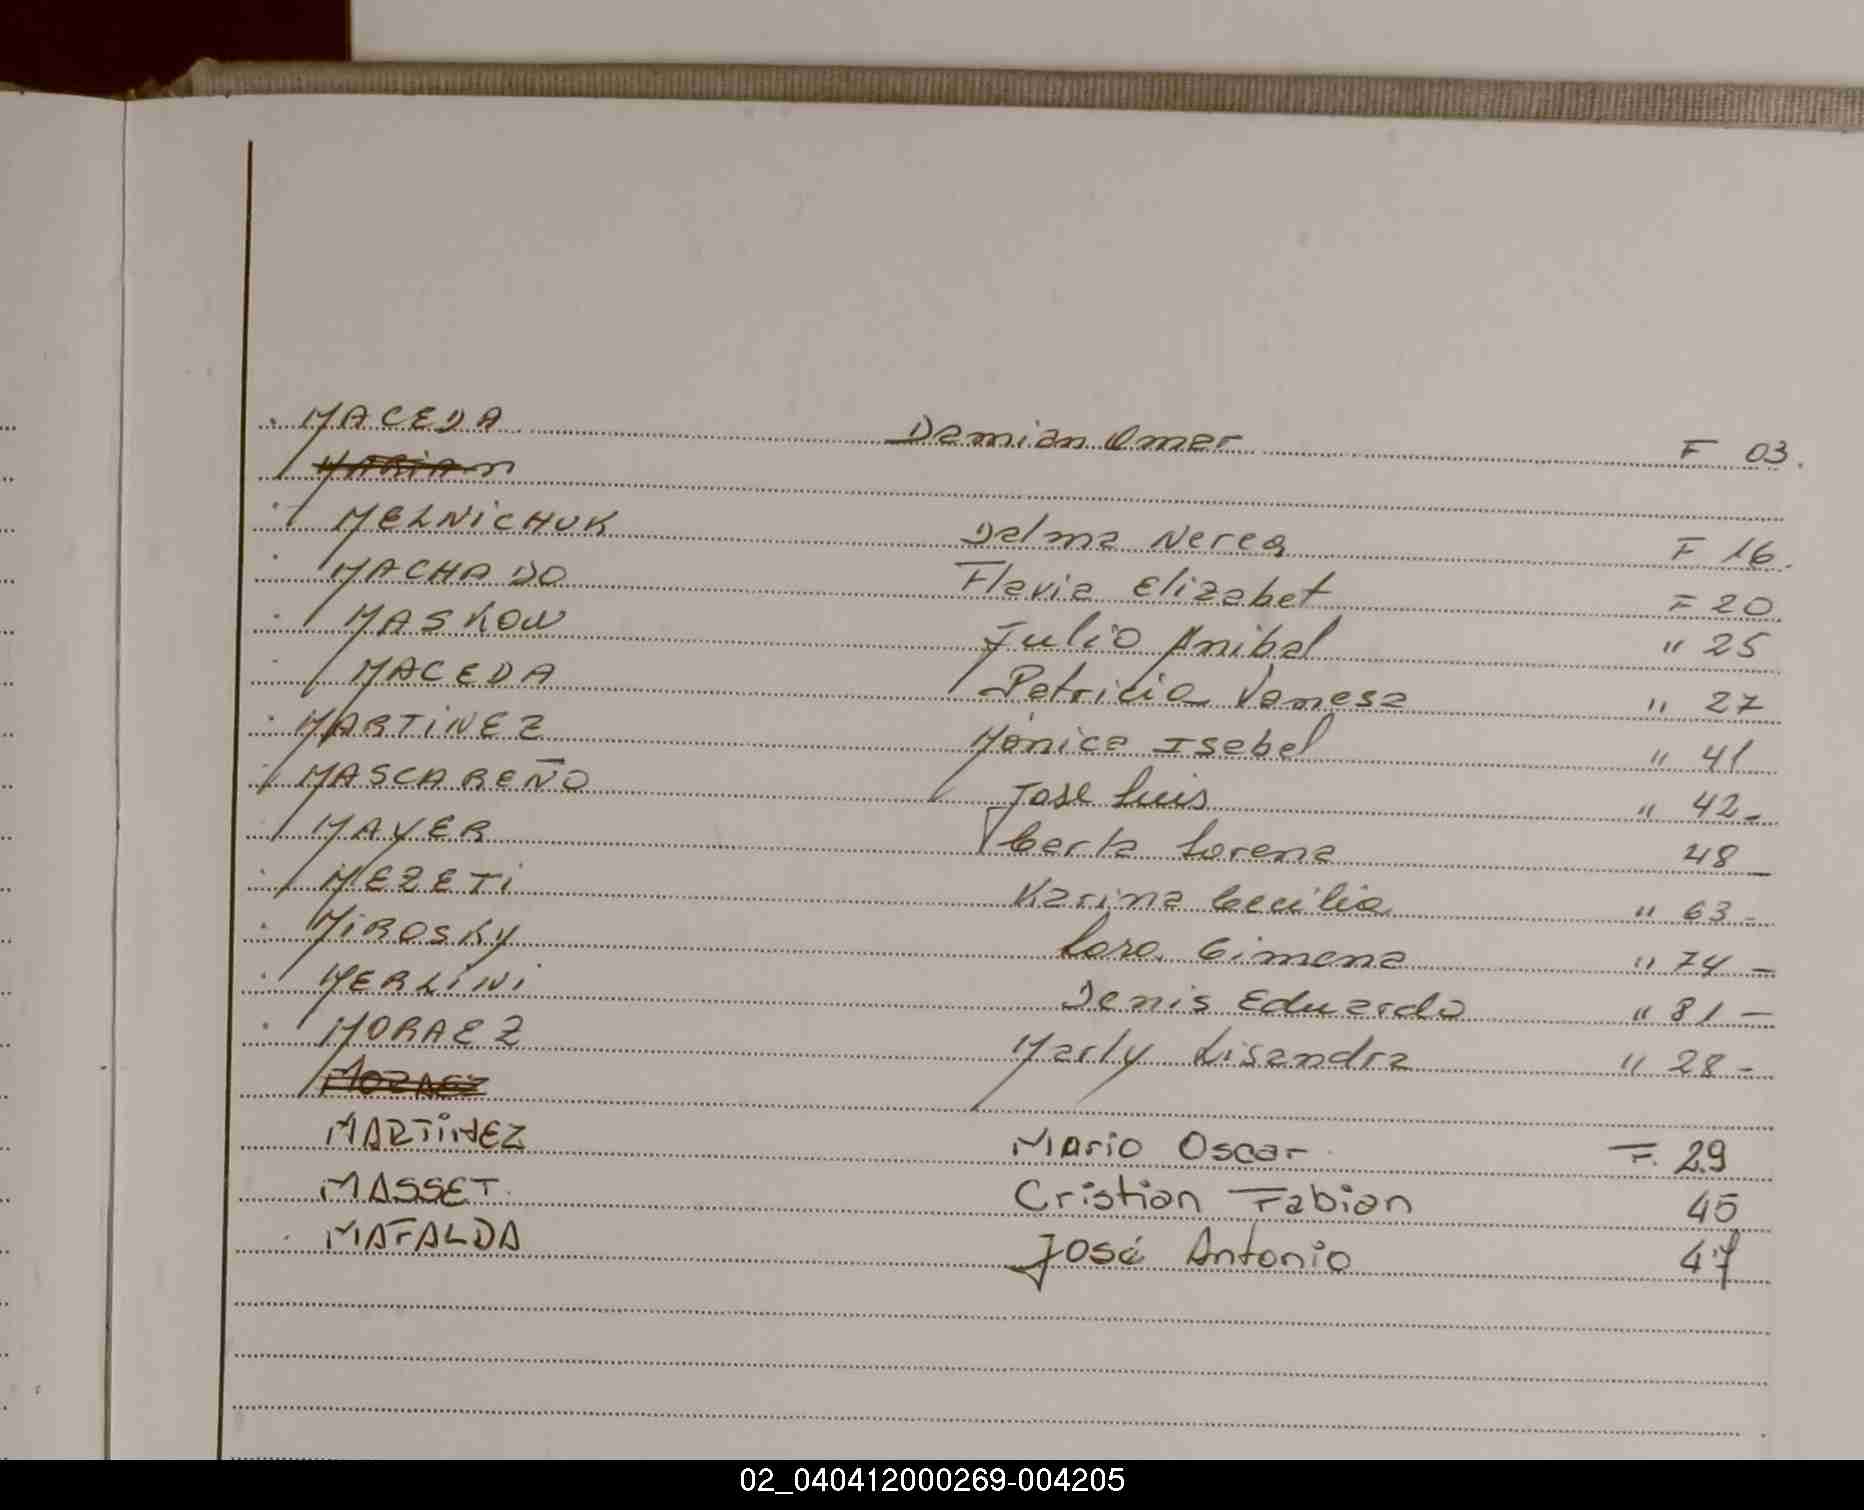 MACEDA Damian Omar F 03.
MELNICHUK Dalma Nerea F 16.
MACHADO Flavia Elizabet F 20
MASKOW Julio Anibal " 25
MACEDA Patricia Vanesa " 27
MARTINEZ Mónica Isabel " 41
MASCAREÑO José Luis " 42-
MAYER Carla Lorena 48-
MEZETI Karina Cecilia " 63-
MIROSKY Lara Gimena " 74-
MERLINI Denis Eduardo " 81-
MORAEZ Marly Lisandra " 28-
MARTINEZ Mario Oscar F. 29
MASSET. Cristian Fabian 45
MAFALDA José Antonio 47
02_040412000269-004205